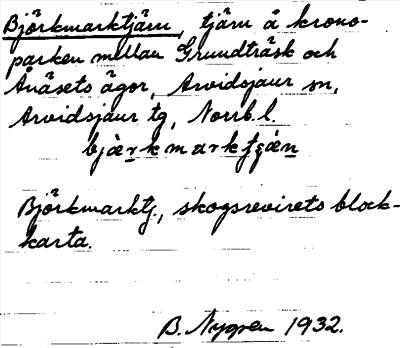 Björkmarktjärn, tjärn å krono-
parken mellan Grundträsk och
Ånäsets ägor, Arvidsjaur sn,
Arvidsjaur tg, Norrb.l.
Björkmarktj., skogsrevirets block-
karta.
B. Nygren 1932.